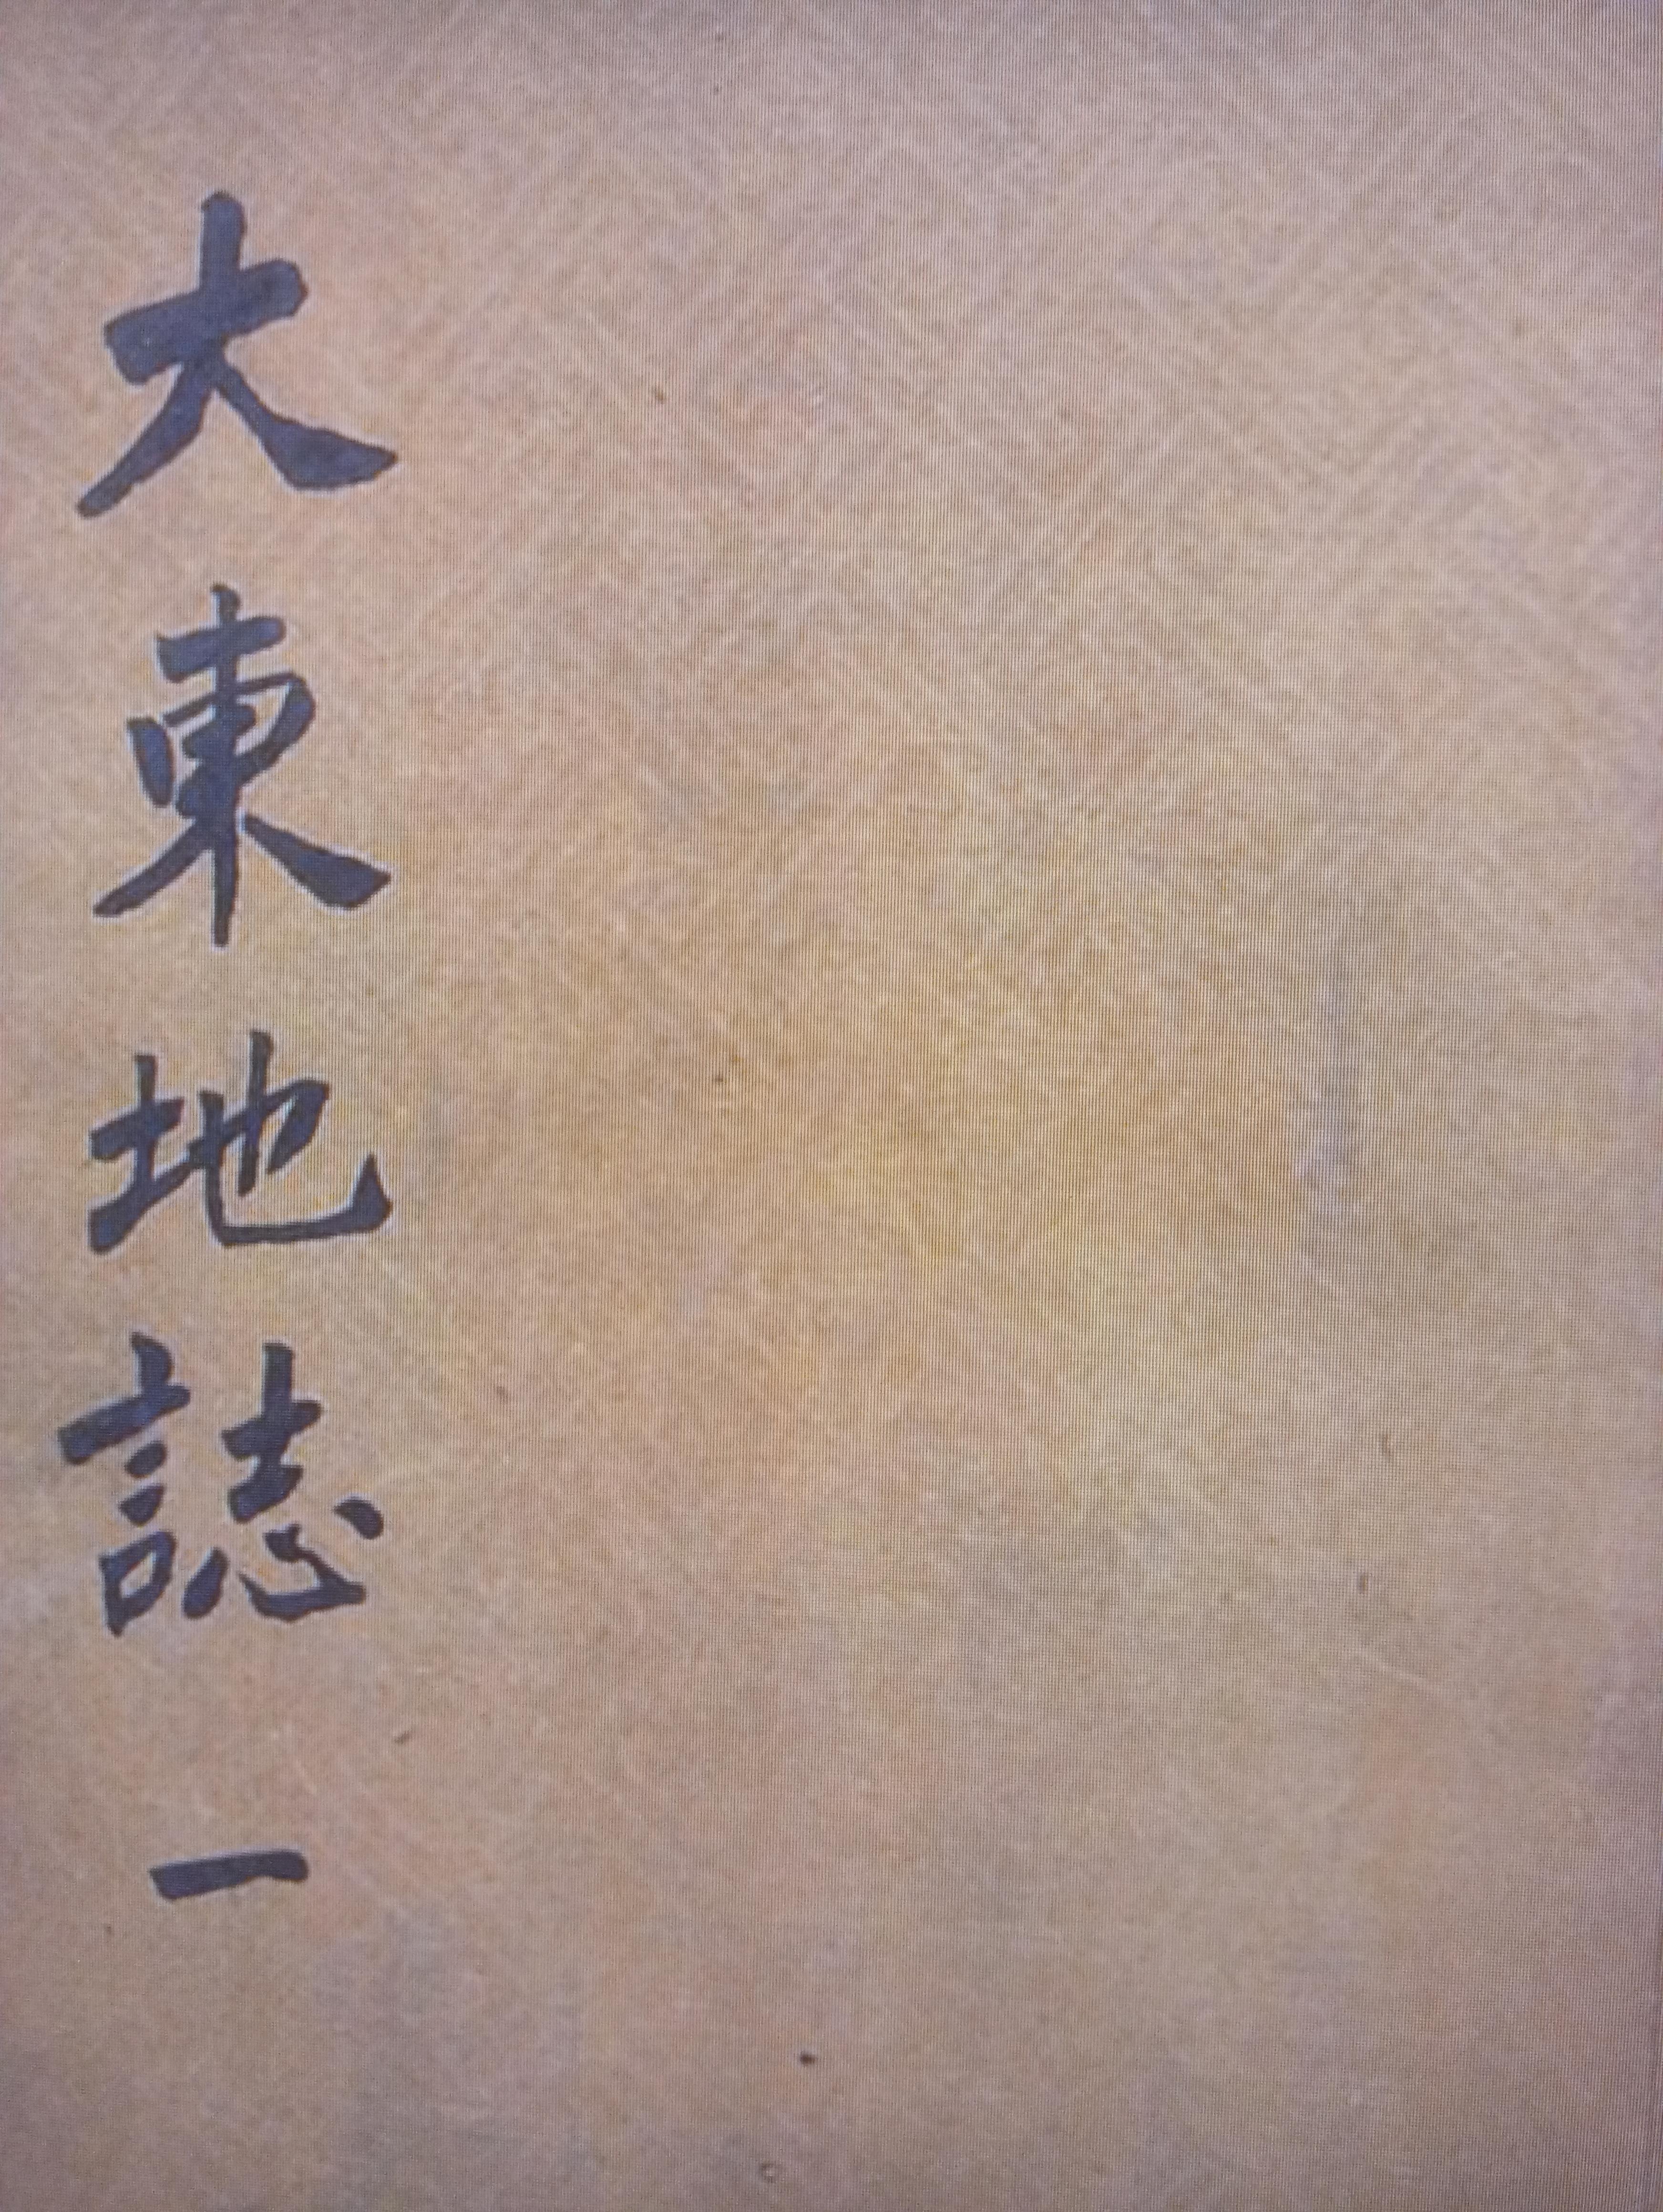 大東地誌 一